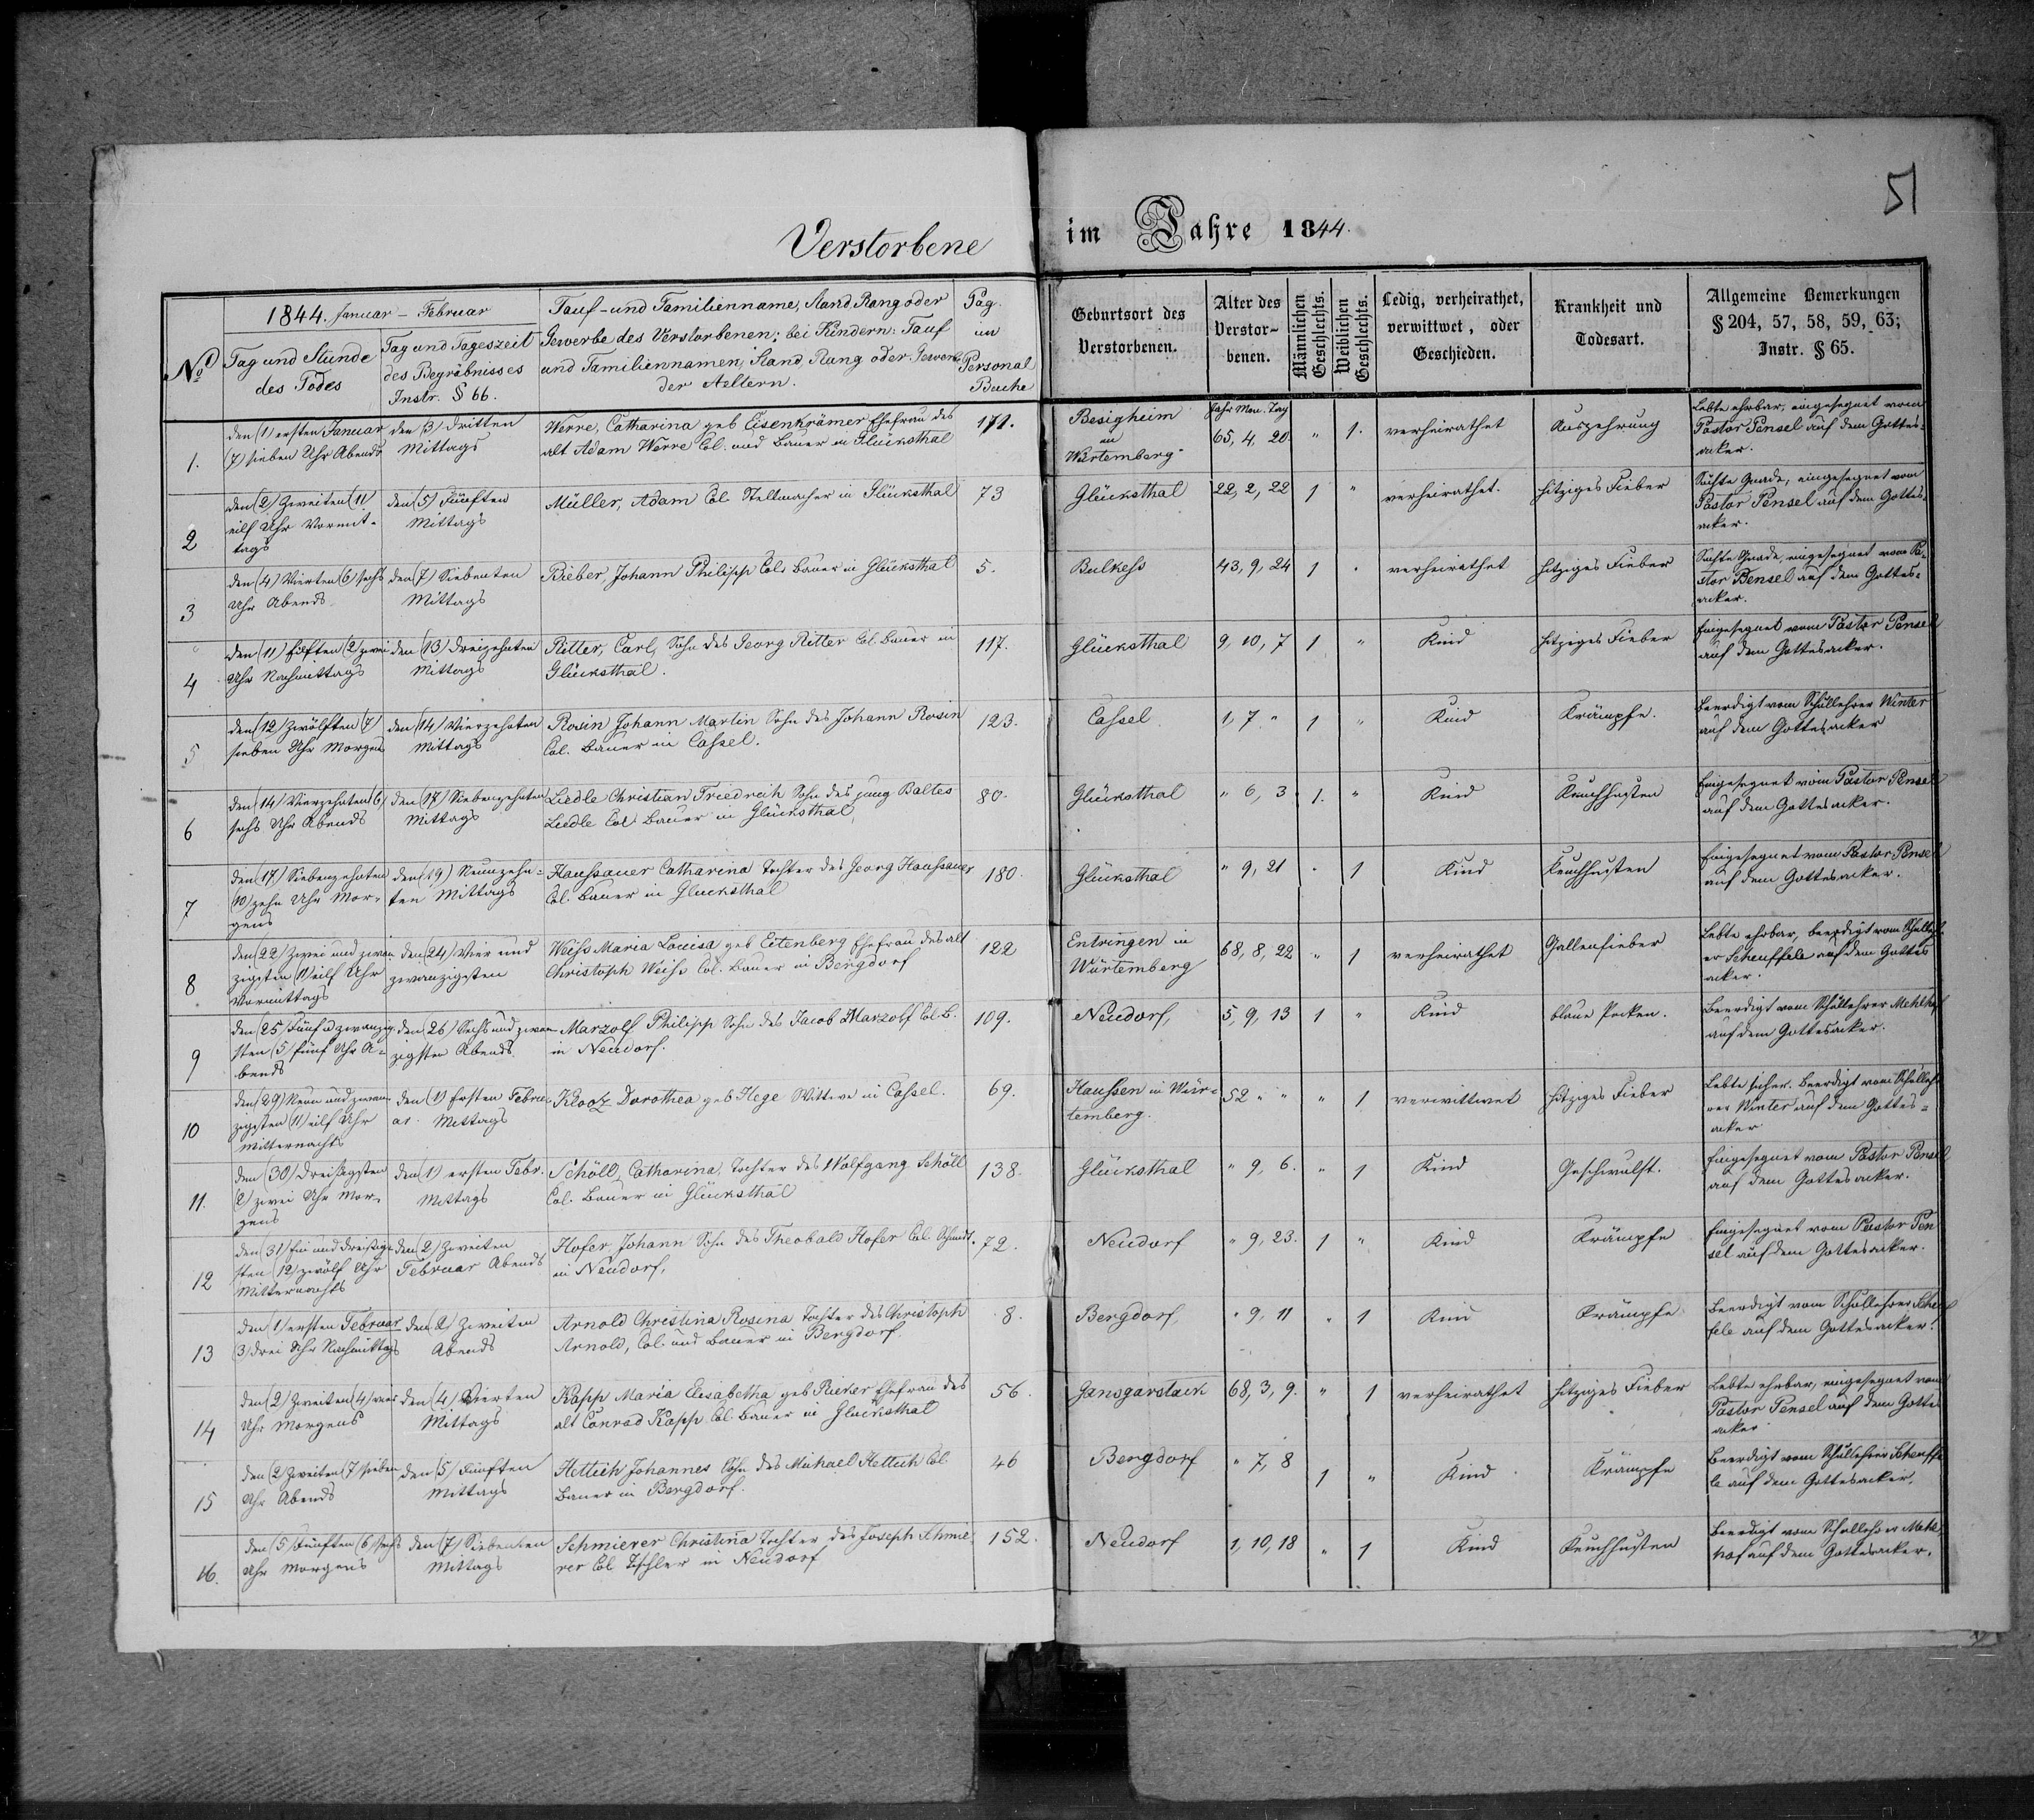 51
Verstorbene im Jahre 1844.
No
1844. Januar - Februar
Tag und Stunde
des Todes
Tag und Tageszeit
des Begräbnisses
Instr. § 66.
Tauf- und Familienname, Stand, Rang oder
Gewerbe des Verstorbenen; bei Kindern: Tauf
und Familiennamen, Stand, Rang oder Gewerbe
der Aeltern.
Pag.
im
Personal
Buche
Geburtsort des
Verstorbenen.
Alter des
Verstor-
benen.
Männlichen
Geschlechts.
Weiblichen
Geschlechts.
Ledig, verheirathet,
verwittwet, oder
Geschieden.
Krankheit und
Todesart.
Allgemeine Bemerkungen
§ 204, 57, 58, 59, 63;
Instr. § 65.
1.
den (1) ersten Januar
(7) sieben Uhr Abends
den (3) dritten
Mittags
Werre, Catharina geb Eisenkrämer Ehefrau des
alt Adam Werre Col. und Bauer in Glücksthal
171.
Besigheim
in
Würtemberg
Jahr Mon. Tag
65, 4. 20.
"
1.
verheirathet
Auszehrung
Lebte ehrbar, eingesegnet vom
Pastor Pensel auf dem Gottes-
acker.
2
den (2) Zweiten (11)
eilf Uhr Vormit-
tags
den (5) Fünften
Mittags
Müller, Adam Col Stellmacher in Glücksthal
73
Glücksthal
22, 2, 22
1
"
verheirathet.
hitziges Fieber
Suchte Gnade, eingesegnet vom
Pastor Pensel auf dem Gottes-
acker.
3
den (4) Vierten (6) sechs
Uhr Abends
den (7) Siebenten
Mittags
Bieber Johann Philipp Col. Bauer in Glücksthal
5.
Bulkess
43, 9, 24
1
"
verheirathet
hitziges Fieber
Suchte Gnade, eingesegnet vom Pa-
stor Pensel auf dem Gottes-
acker.
4
den (11) Eilften (2) zwei
Uhr Nachmittags
den (13) dreizehnten
Mittags
Ritter, Carl, Sohn des Georg Ritter Col. Bauer in
Glücksthal.
117.
Glücksthal
9, 10, 7
1
"
Kind
hitziges Fieber
Eingesegnet vom Pastor Pensel
auf dem Gottesacker.
5
den (12) Zwölften (7)
sieben Uhr Morgens
den (14) Vierzehnten
Mittags
Rosin Johann Martin Sohn des Johann Rosin
Col. Bauer in Cassel.
123.
Cassel
1, 7 "
1
"
Kind
Krämpfe.
Beerdigt vom Schullehrer Winter
auf dem Gottesacker
6
den (14) Vierzehnten (6)
sechs Uhr Abends
den (17) Siebenzehnten
Mittags
Liedle Christian Friedreich Sohn des jung Baltes
Liedle Col Bauer in Glücksthal,
80.
Glücksthal
" 6, 3
1.
"
Kind
Keuchhusten
Eingesegnet vom Pastor Pensel
auf dem Gottesacker.
7
den (17) Siebenzehnten
(10) zehn Uhr Mor-
gens
den (19) Neunzehn-
ten Mittags
Haussauer Catharina Tochter des Georg Haussauer
Col. Bauer in Glücksthal
180.
Glücksthal
" 9, 21
"
1
Kind
Keuchhusten
Eingesegnet vom Pastor Pensel
auf dem Gottesacker.
8
den (22) Zwei und zwan
zigsten (11) eilf Uhr
Vormittags
den (24) Vier und
zwanzigsten
Weiss Maria Louisa geb Eitenberg Ehefrau des alt
Christoph Weiss Col. Bauer in Bergdorf
122
Entringen in
Würtemberg
68, 8, 22
"
1
verheirathet
Gallenfieber
Lebte ehrbar, beerdigt vom Schulleh
er Scheuffele auf dem Gottes
acker.
9
den (25) Fünf u zwanzig
sten (5) fünf Uhr A-
bends
den (26) Sechs und zwan
zigsten Abends
Marzolf Philipp Sohn des Jacob Marzolf Col. B.
in Neudorf.
109.
Neudorf,
5, 9, 13
1
"
Kind
blaue Pocken.
Beerdigt vom Schullehrer Mehlhaf
auf dem Gottesacker.
10
den (29) Neun und zwan-
zigsten (11) eilf Uhr
Mitternachts
den (1) ersten Febru
ar. Mittags
Klootz Dorothea geb Hege Wittwe in Cassel.
69.
Haussen in Wür-
temberg.
52 " "
"
1
verwittwet
hitziges Fieber
Lebte sicher. Beerdigt vom Schulleh
rer Winter auf dem Gottes-
acker
11.
den (30) Dreissigsten
(2) zwei Uhr Mor-
gens
den (1) ersten Febr.
Mittags
Schöll, Catharina, Tochter des Wolfgang Schöll
Col. Bauer in Glücksthal
138.
Glücksthal
" 9, 6.
"
1
Kind
Geschwulst.
Eingesegnet vom Pastor Pensel
auf dem Gottesacker.
12
den (31) Ein und dreissig-
sten (12) zwölf Uhr
Mitternachts
den (2) Zweiten
Februar Abends
Hofer Johann Sohn des Theobald Hofer Col. Schmidt.
in Neudorf,
72.
Neudorf
" 9, 23.
1
"
Kind
Krämpfe
Eingesegnet vom Pastor Pen
sel auf dem Gottesacker.
13
den (1) ersten Februar
(3) drei Uhr Nachmittags
den (2) Zweiten
Abends
Arnold Christina Rosina Tochter des Christoph
Arnold, Col. und Bauer in Bergdorf.
8.
Bergdorf,
" 9, 11
"
1
Kind
Krämpfe
Beerdigt vom Schullehrer Scheuf
fele auf dem Gottesacker.
14
den (2) Zweiten (4) vier
Uhr Morgens
den (4) Vierten
Mittags
Kapp Maria Elisabetha geb Rieker Ehefrau des
alt Conrad Kapp Col. Bauer in Glücksthal
56.
68, 3, 9.
"
1
verheirathet
hitziges Fieber
Lebte ehrbar, eingesegnet vom
Pastor Pensel auf dem Gottes
acker
15
den (2) Zweiten (7) sieben
Uhr Abends
den (5) Fünften
Mittags
Hettich Johannes Sohn des Michael Hettich Col
Bauer in Bergdorf.
46
Bergdorf
" 7, 8
1
"
Kind
Krämpfe
Beerdigt vom Schullehrer Scheuffe
le auf dem Gottesacker.
16.
den (5) Fünften (6) sechs
Uhr Morgens
den (7) Siebenten
Mittags
Schmierer Christina Tochter des Joseph Schmie
rer Col Tischler in Neudorf
152.
Neudorf
1, 10, 18
"
1
Kind
Keuchhusten
Beerdigt vom Schullehrer Mehl
haf auf dem Gottesacker.